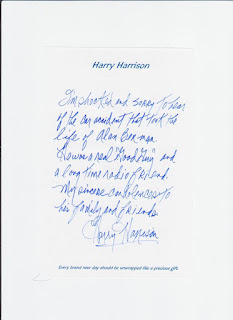 Harry Harrison
I'm shocked and sorry to hear
of the car accident that took the
life of Alan
He was a real "Good Guy" and
a long time radio friend
My sincere condolences to
his family and friends.
Harry Harrison
Every brand new day should be unwrapped like a precious gift.